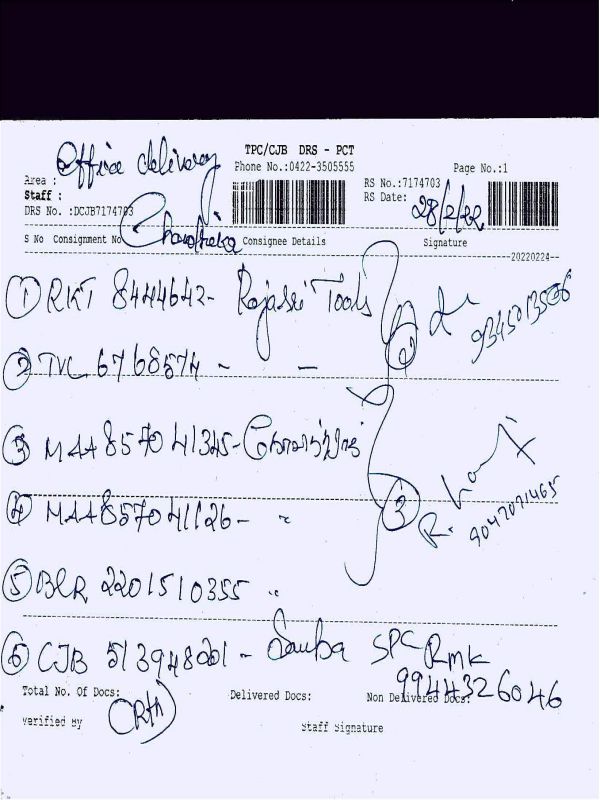 TPC/CJB DRS - PCT
Office delivery
Phone No.:0422-3505555
Page No.:1
Area :
RS No.:7174703
Staff :
RS Date: 28/2/22
DRS No. :DCJB7174703
S No Consignment No Consignee Details Signature
--20220224--
① RKT 8444642 - Rajasri Tools
② 9345013506
② TVC 6768574 - -
③ MAA 857041345 -
④ MAA 857041126 - "
③ R. 9047071465
⑤ BLR 2201510355 "
⑥ CJB 513948001 - SPC RMK
9944326046
Total No. Of Docs: Delivered Docs: Non Delivered Docs:
Verified By
Staff Signature